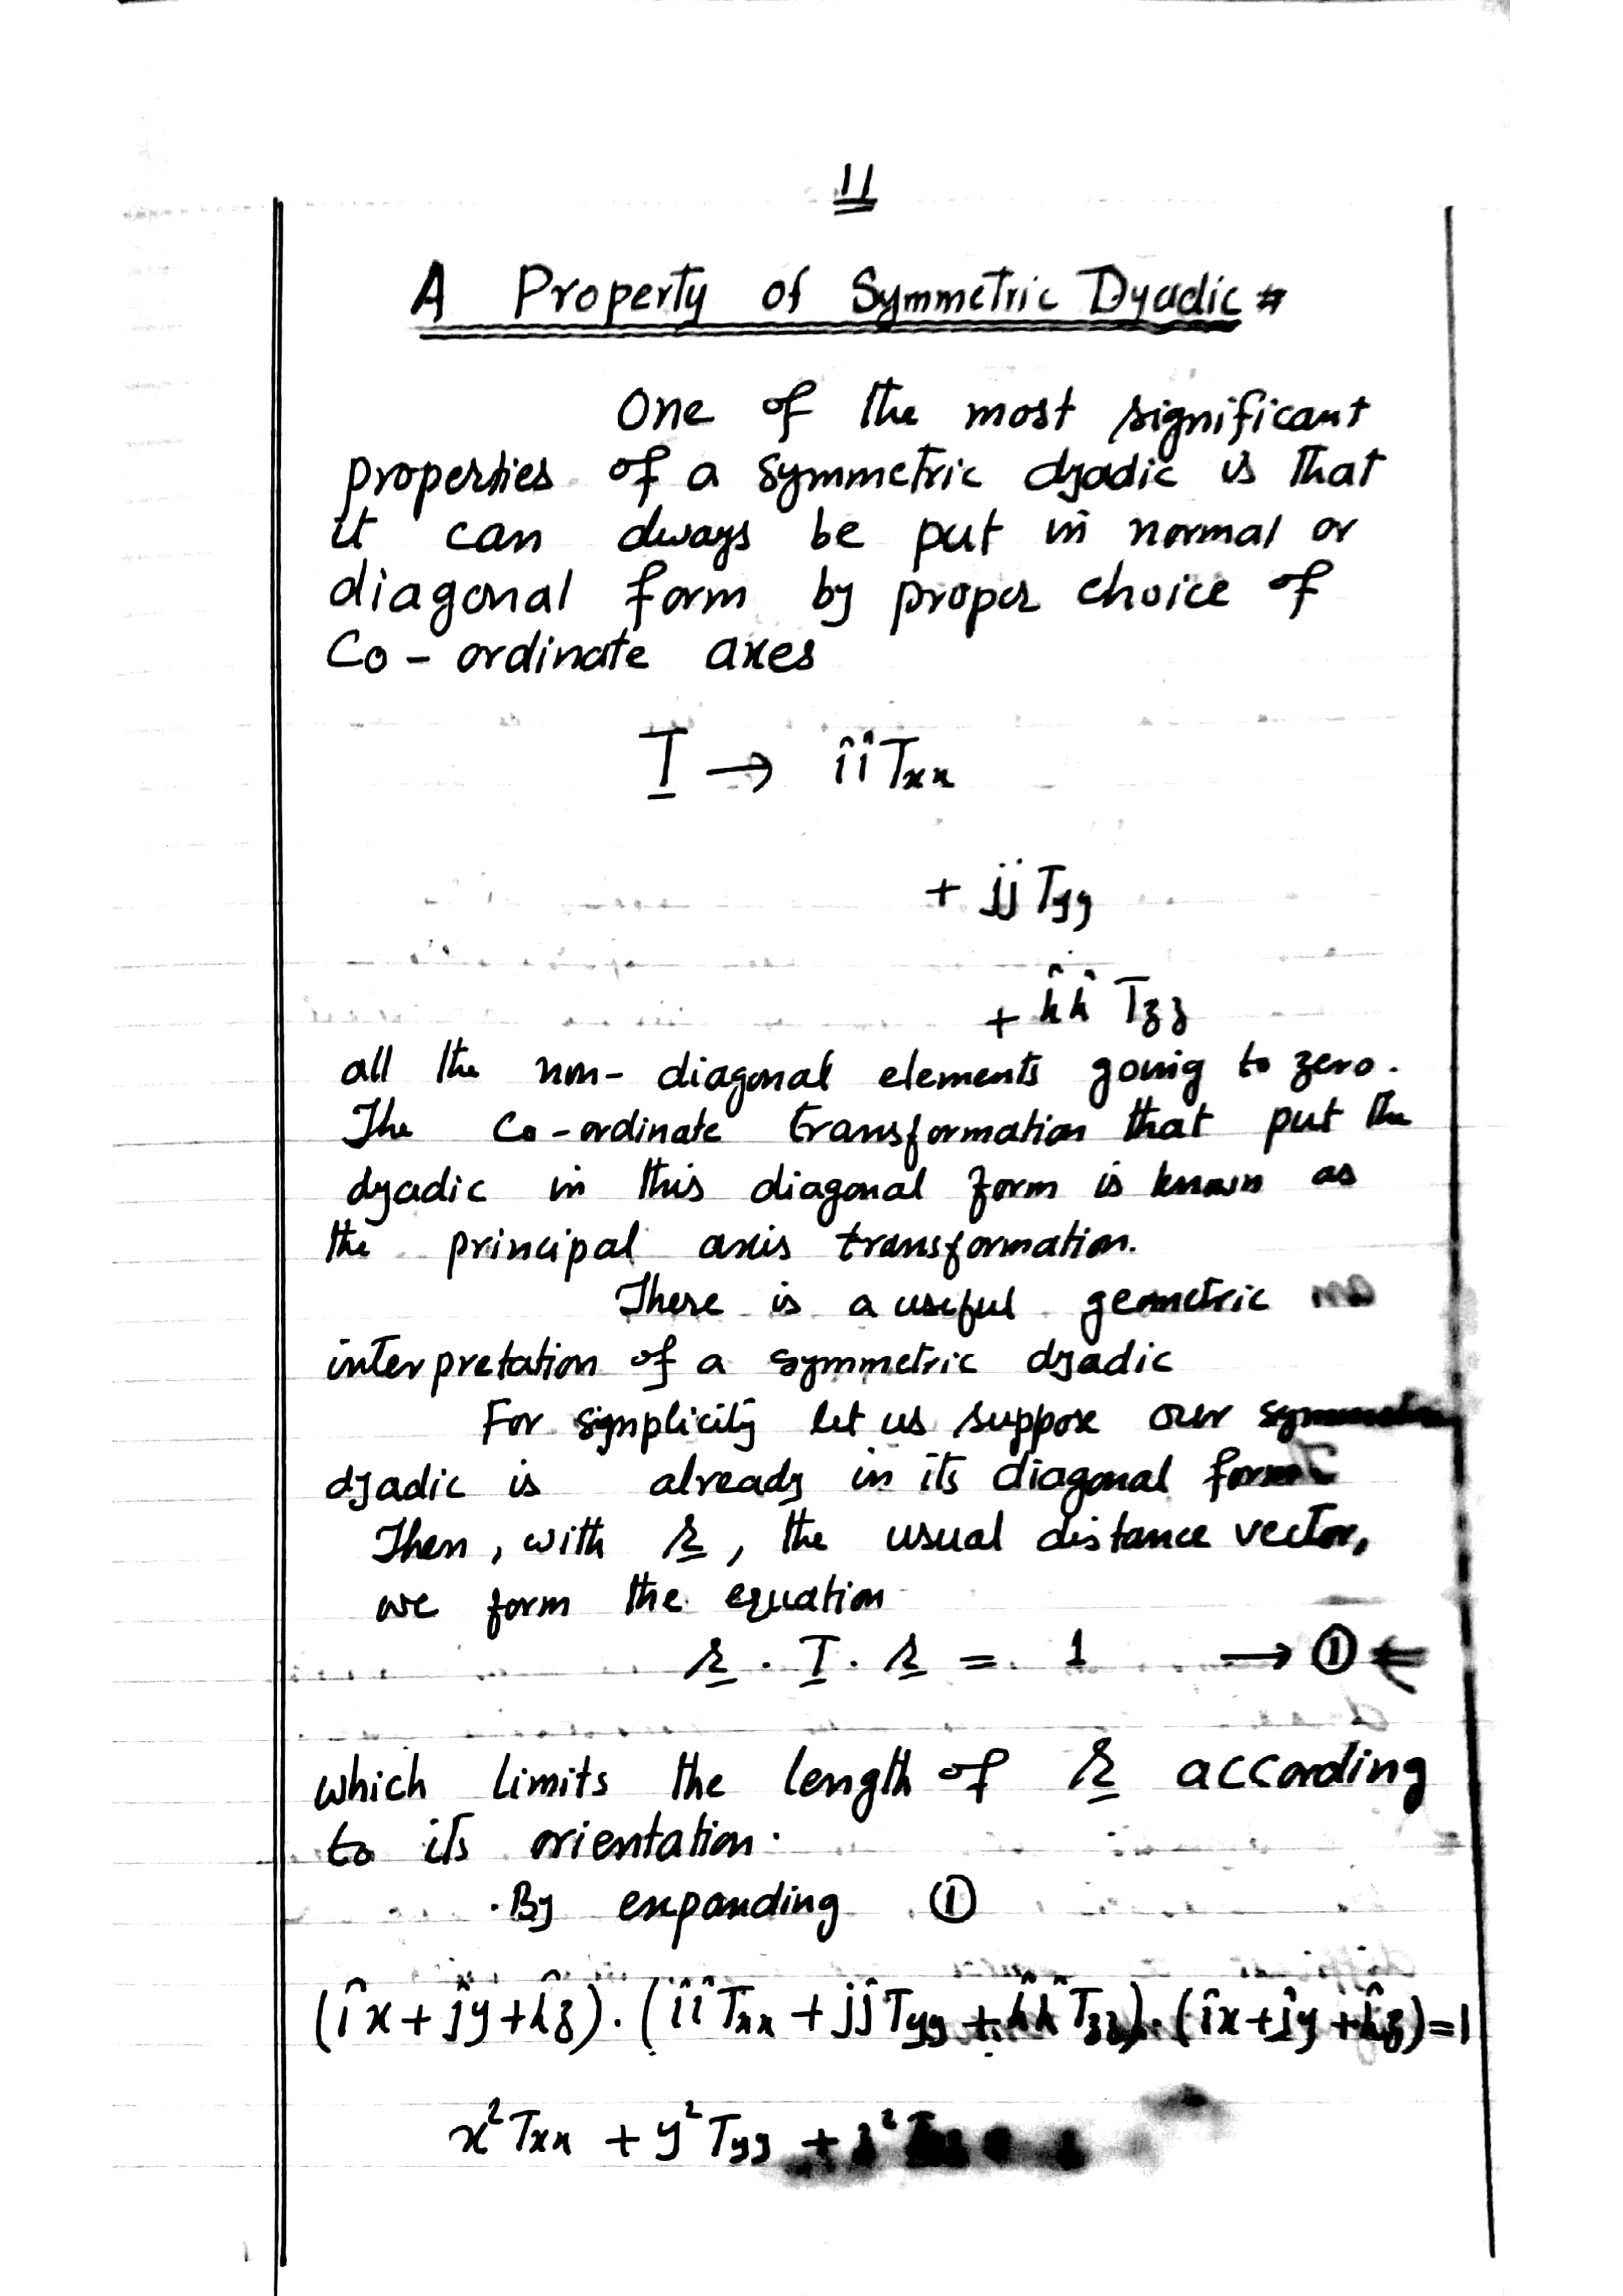 11
A Property of Symmetric Dyadic *
One of the most significant
properties of a symmetric dyadic is that
it can always be put in normal or
diagonal form by proper choice of
Co-ordinate axes
T̲ → îî Txx
+ jj Tyy
+ k̂k̂ Tzz
all the non-diagonal elements going to zero.
The Co-ordinate transformation that put the
dyadic in this diagonal form is known as
the principal axis transformation.
There is a useful geometric
interpretation of a symmetric dyadic
For simplicity let us suppose our symmetric
dyadic is already in its diagonal form
Then, with r̲, the usual distance vector,
we form the equation
r̲ . T̲ . r̲ = 1 → ① ←
which limits the length of r̲ according
to its orientation.
By expanding ①
(îx + ĵy + k̂z) . (îî Txx + jĵ Tyy + k̂k̂ Tzz) . (îx + ĵy + k̂z) = 1
x² Txx + y² Tyy + z²